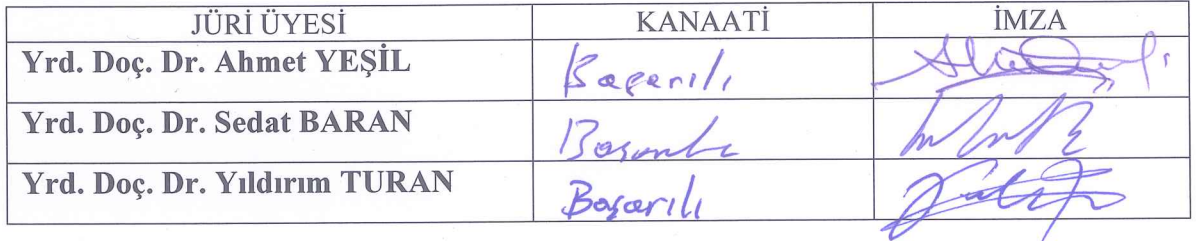 JÜRİ ÜYESİ KANAATİ İMZA
Yrd. Doç. Dr. Ahmet YEŞİL Başarılı
Yrd. Doç. Dr. Sedat BARAN Başarılı
Yrd. Doç. Dr. Yıldırım TURAN Başarılı